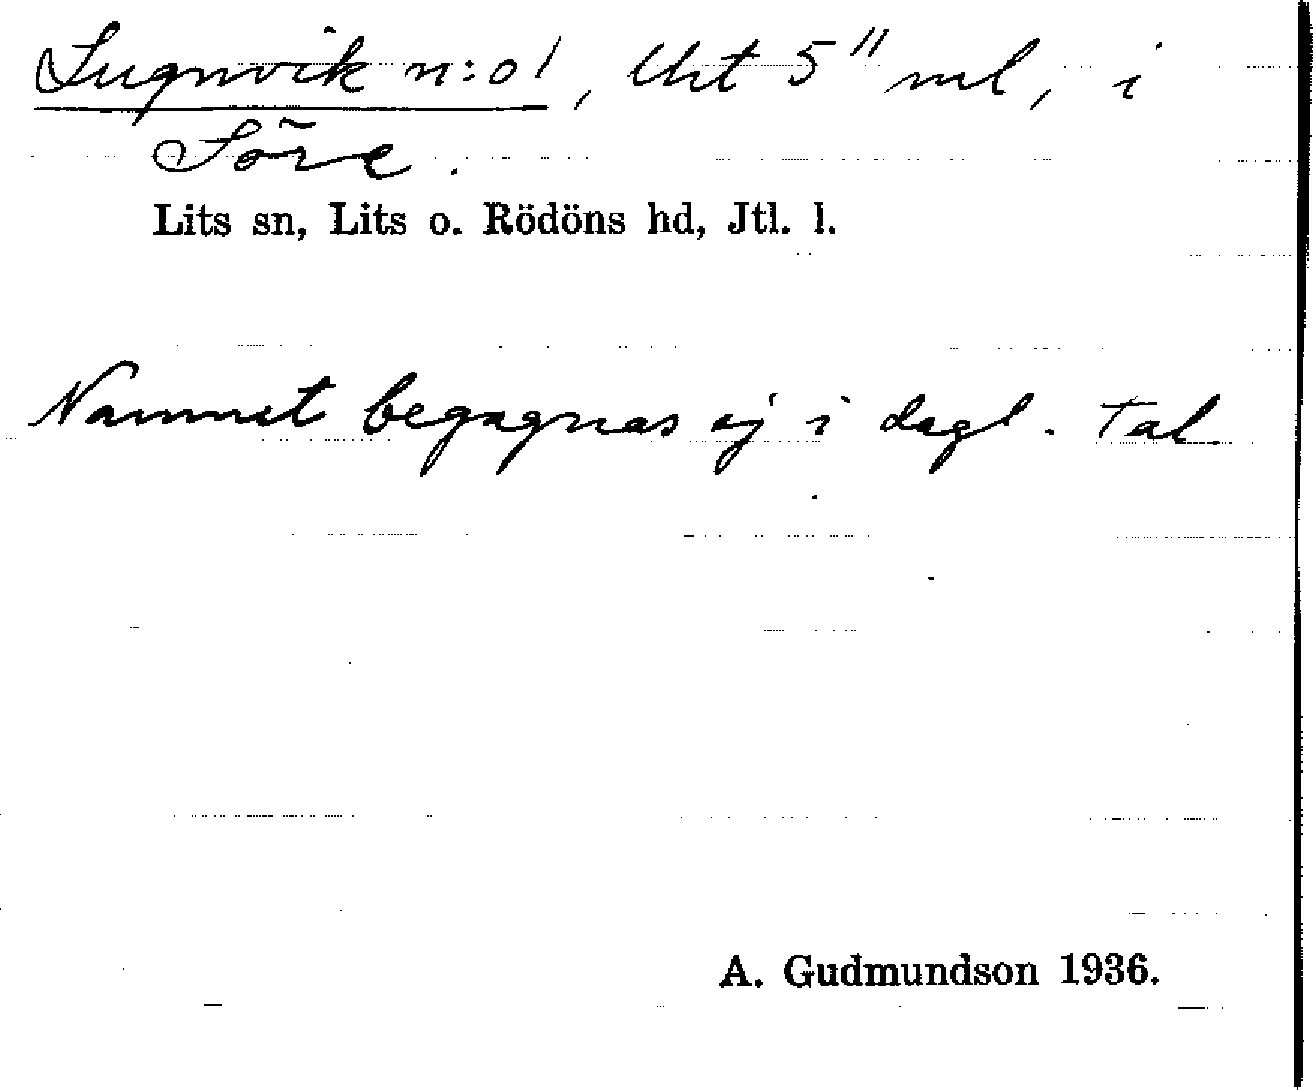 Lugnvik n:o 1, Uht 5" ml, i
Söre.
Lits sn, Lits o. Rödöns hd, Jtl. l.
Namnet begagnas ej i dagl. tal
A. Gudmundson 1936.